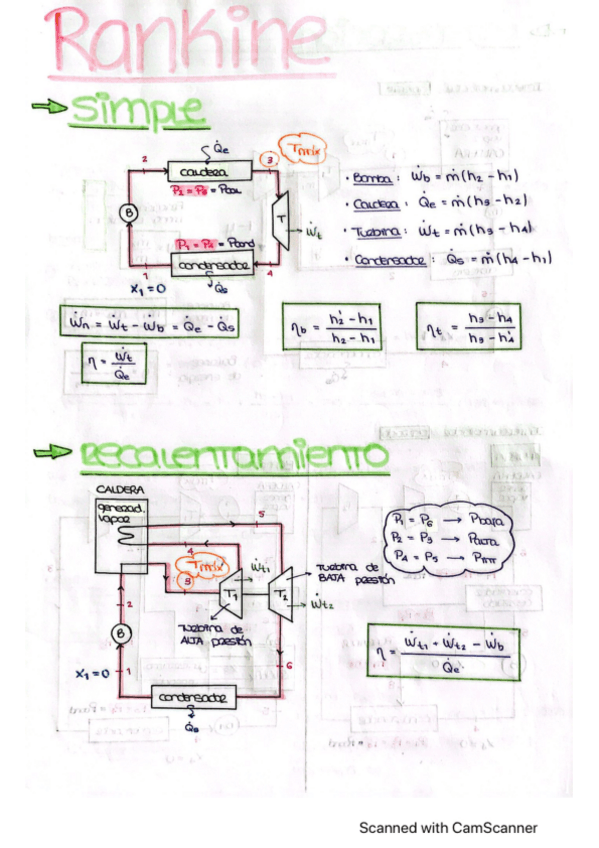 Rankine
→ Simple
Q̇e
2
caldera
3
Tmáx
P2 = P3 = Pcald
B
T
Ẇt
P1 = P4 = Pcond
condensador
1
4
X1=0
Q̇s
· Bomba : Ẇb = ṁ(h2 - h1)
· Caldera : Q̇e = ṁ(h3 - h2)
· Turbina : Ẇt = ṁ(h3 - h4)
· Condensador : Q̇s = ṁ(h4 - h1)
Ẇn = Ẇt - Ẇb = Q̇e - Q̇s
ηb = h2' - h1 / h2 - h1
ηt = h3 - h4 / h3 - h4'
η = Ẇt / Q̇e
→ RECALENTAMIENTO
CALDERA
generad.
vapor
5
4
Tmáx
3
Ẇt1
T1
T2
Ẇt2
TURBINA DE
BAJA PRESIÓN
TURBINA DE
ALTA PRESIÓN
2
B
1
6
X1=0
condensador
Q̇s
P1 = P6 → PBAJA
P2 = P3 → PALTA
P4 = P5 → PINT
η = Ẇt1 + Ẇt2 - Ẇb / Q̇e
Scanned with CamScanner